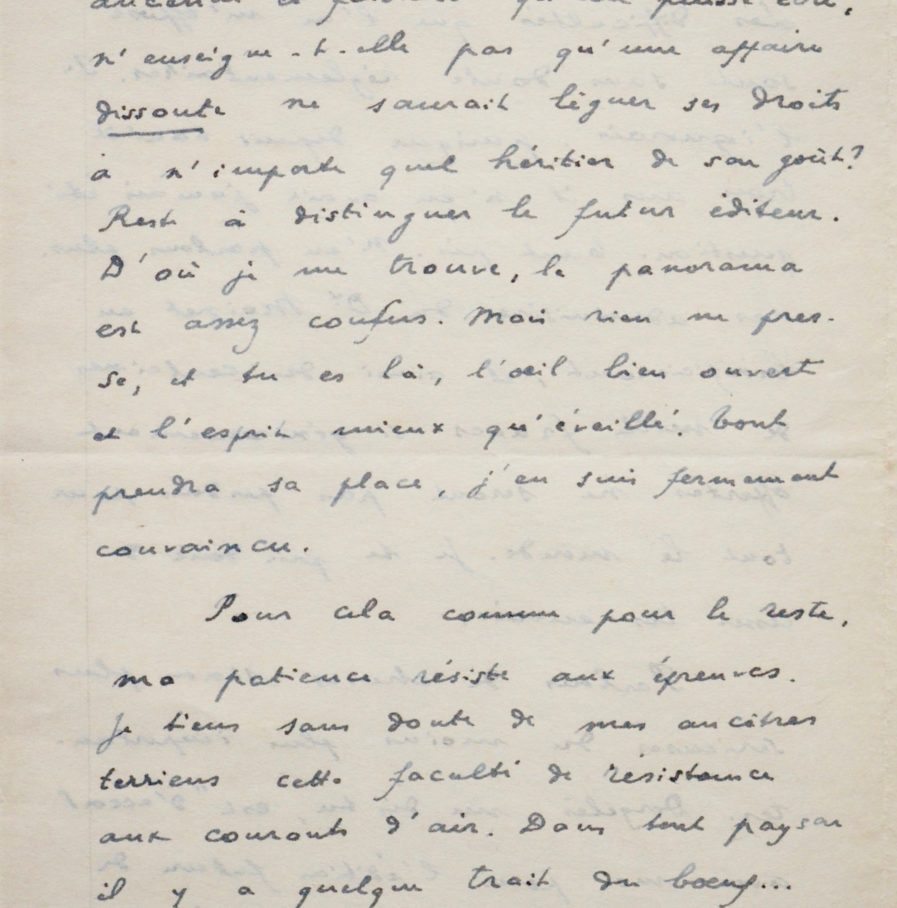 n'enseigne-t-elle pas qu'une affaire
dissoute ne saurait léguer ses droits
à n'importe quel héritier de son goût?
Reste à distinguer le futur éditeur.
D'où je me trouve, le panorama
est assez confus. Mais rien ne pres-
se, et tu es là, l'œil bien ouvert
et l'esprit mieux qu'éveillé. Tout
prendra sa place, j'en suis fermement
convaincu.
Pour cela comme pour le reste,
ma patience résiste aux épreuves.
Je tiens sans doute de mes ancêtres
terriens cette faculté de résistance
aux courants d'air. Dans tout paysan
il y a quelque trait du bœuf...